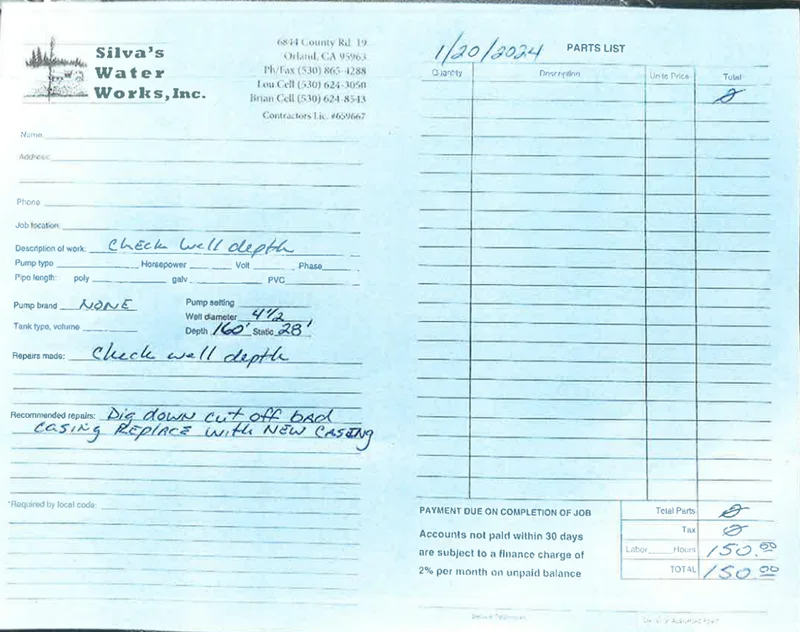 Silva's
Water
Works, Inc.
6844 County Rd. 19
Orland, CA 95963
Ph/Fax (530) 865-4288
Lou Cell (530) 624-3050
Brian Cell (530) 624-8543
Contractors Lic. #659667
Name
Address
Phone
Job location:
Description of work: Check Well depth
Pump type Horsepower Volt Phase
Pipe length: poly galv PVC
Pump brand NONE Pump setting
Well diameter 4 1/2
Tank type, volume Depth 160' Static 28'
Repairs made: Check well depth
Recommended repairs: Dig down cut off bad
casing Replace with New Casing
*Required by local code:
1/20/2024 PARTS LIST
Quantity Description Units Price Total
0
PAYMENT DUE ON COMPLETION OF JOB
Accounts not paid within 30 days
are subject to a finance charge of
2% per month on unpaid balance
Total Parts 0
Tax 0
Labor Hours 150.00
TOTAL 150.00